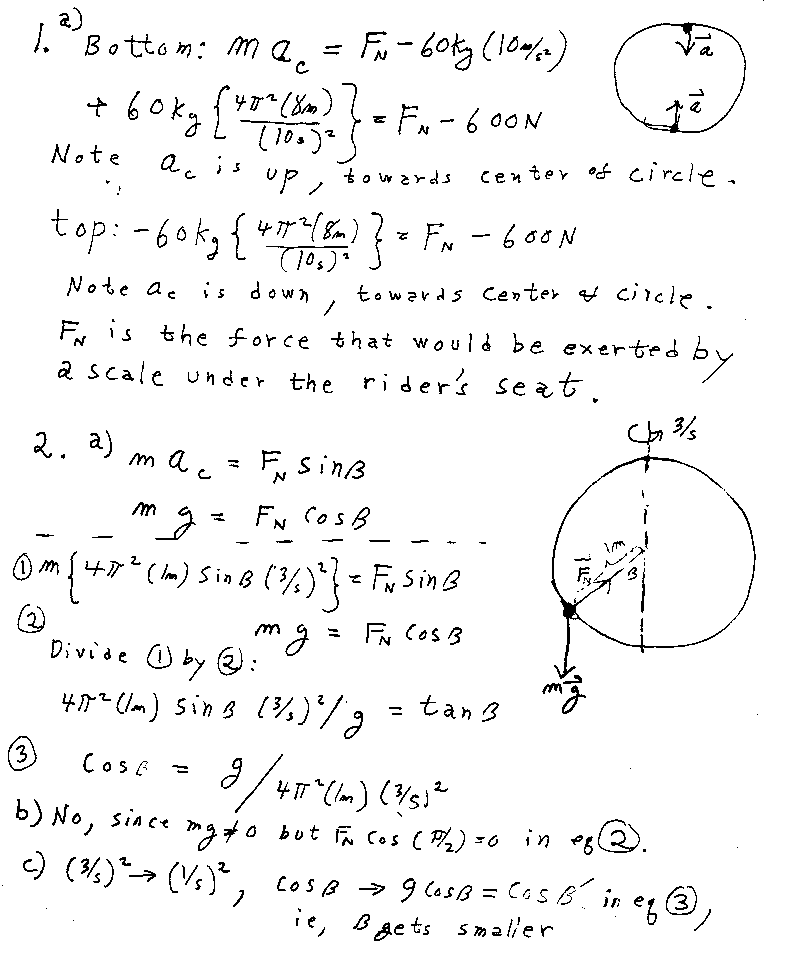 1. a) Bottom: m a_c = F_N - 60kg (10 m/s²)
+ 60kg { 4π²(8m) / (10s)² } = F_N - 600N
Note a_c is up, towards center of circle.
top: -60kg { 4π²(8m) / (10s)² } = F_N - 600N
Note a_c is down, towards center of circle.
F_N is the force that would be exerted by
a scale under the rider's seat.
a⃗
a⃗
2. a) m a_c = F_N sinβ
m g = F_N cosβ
① m { 4π² (1m) sinβ (3/s)² } = F_N sinβ
② m g = F_N cosβ
Divide ① by ②:
4π² (1m) sinβ (3/s)² / g = tanβ
③ cosβ = g / 4π² (1m) (3/s)²
b) No, since mg ≠ 0 but F_N cos (π/2) = 0 in eq ②.
c) (3/s)² → (1/s)², cosβ → 9 cosβ = cosβ' in eq ③,
ie, β gets smaller
3/s
1m
F⃗_N
β
mg⃗